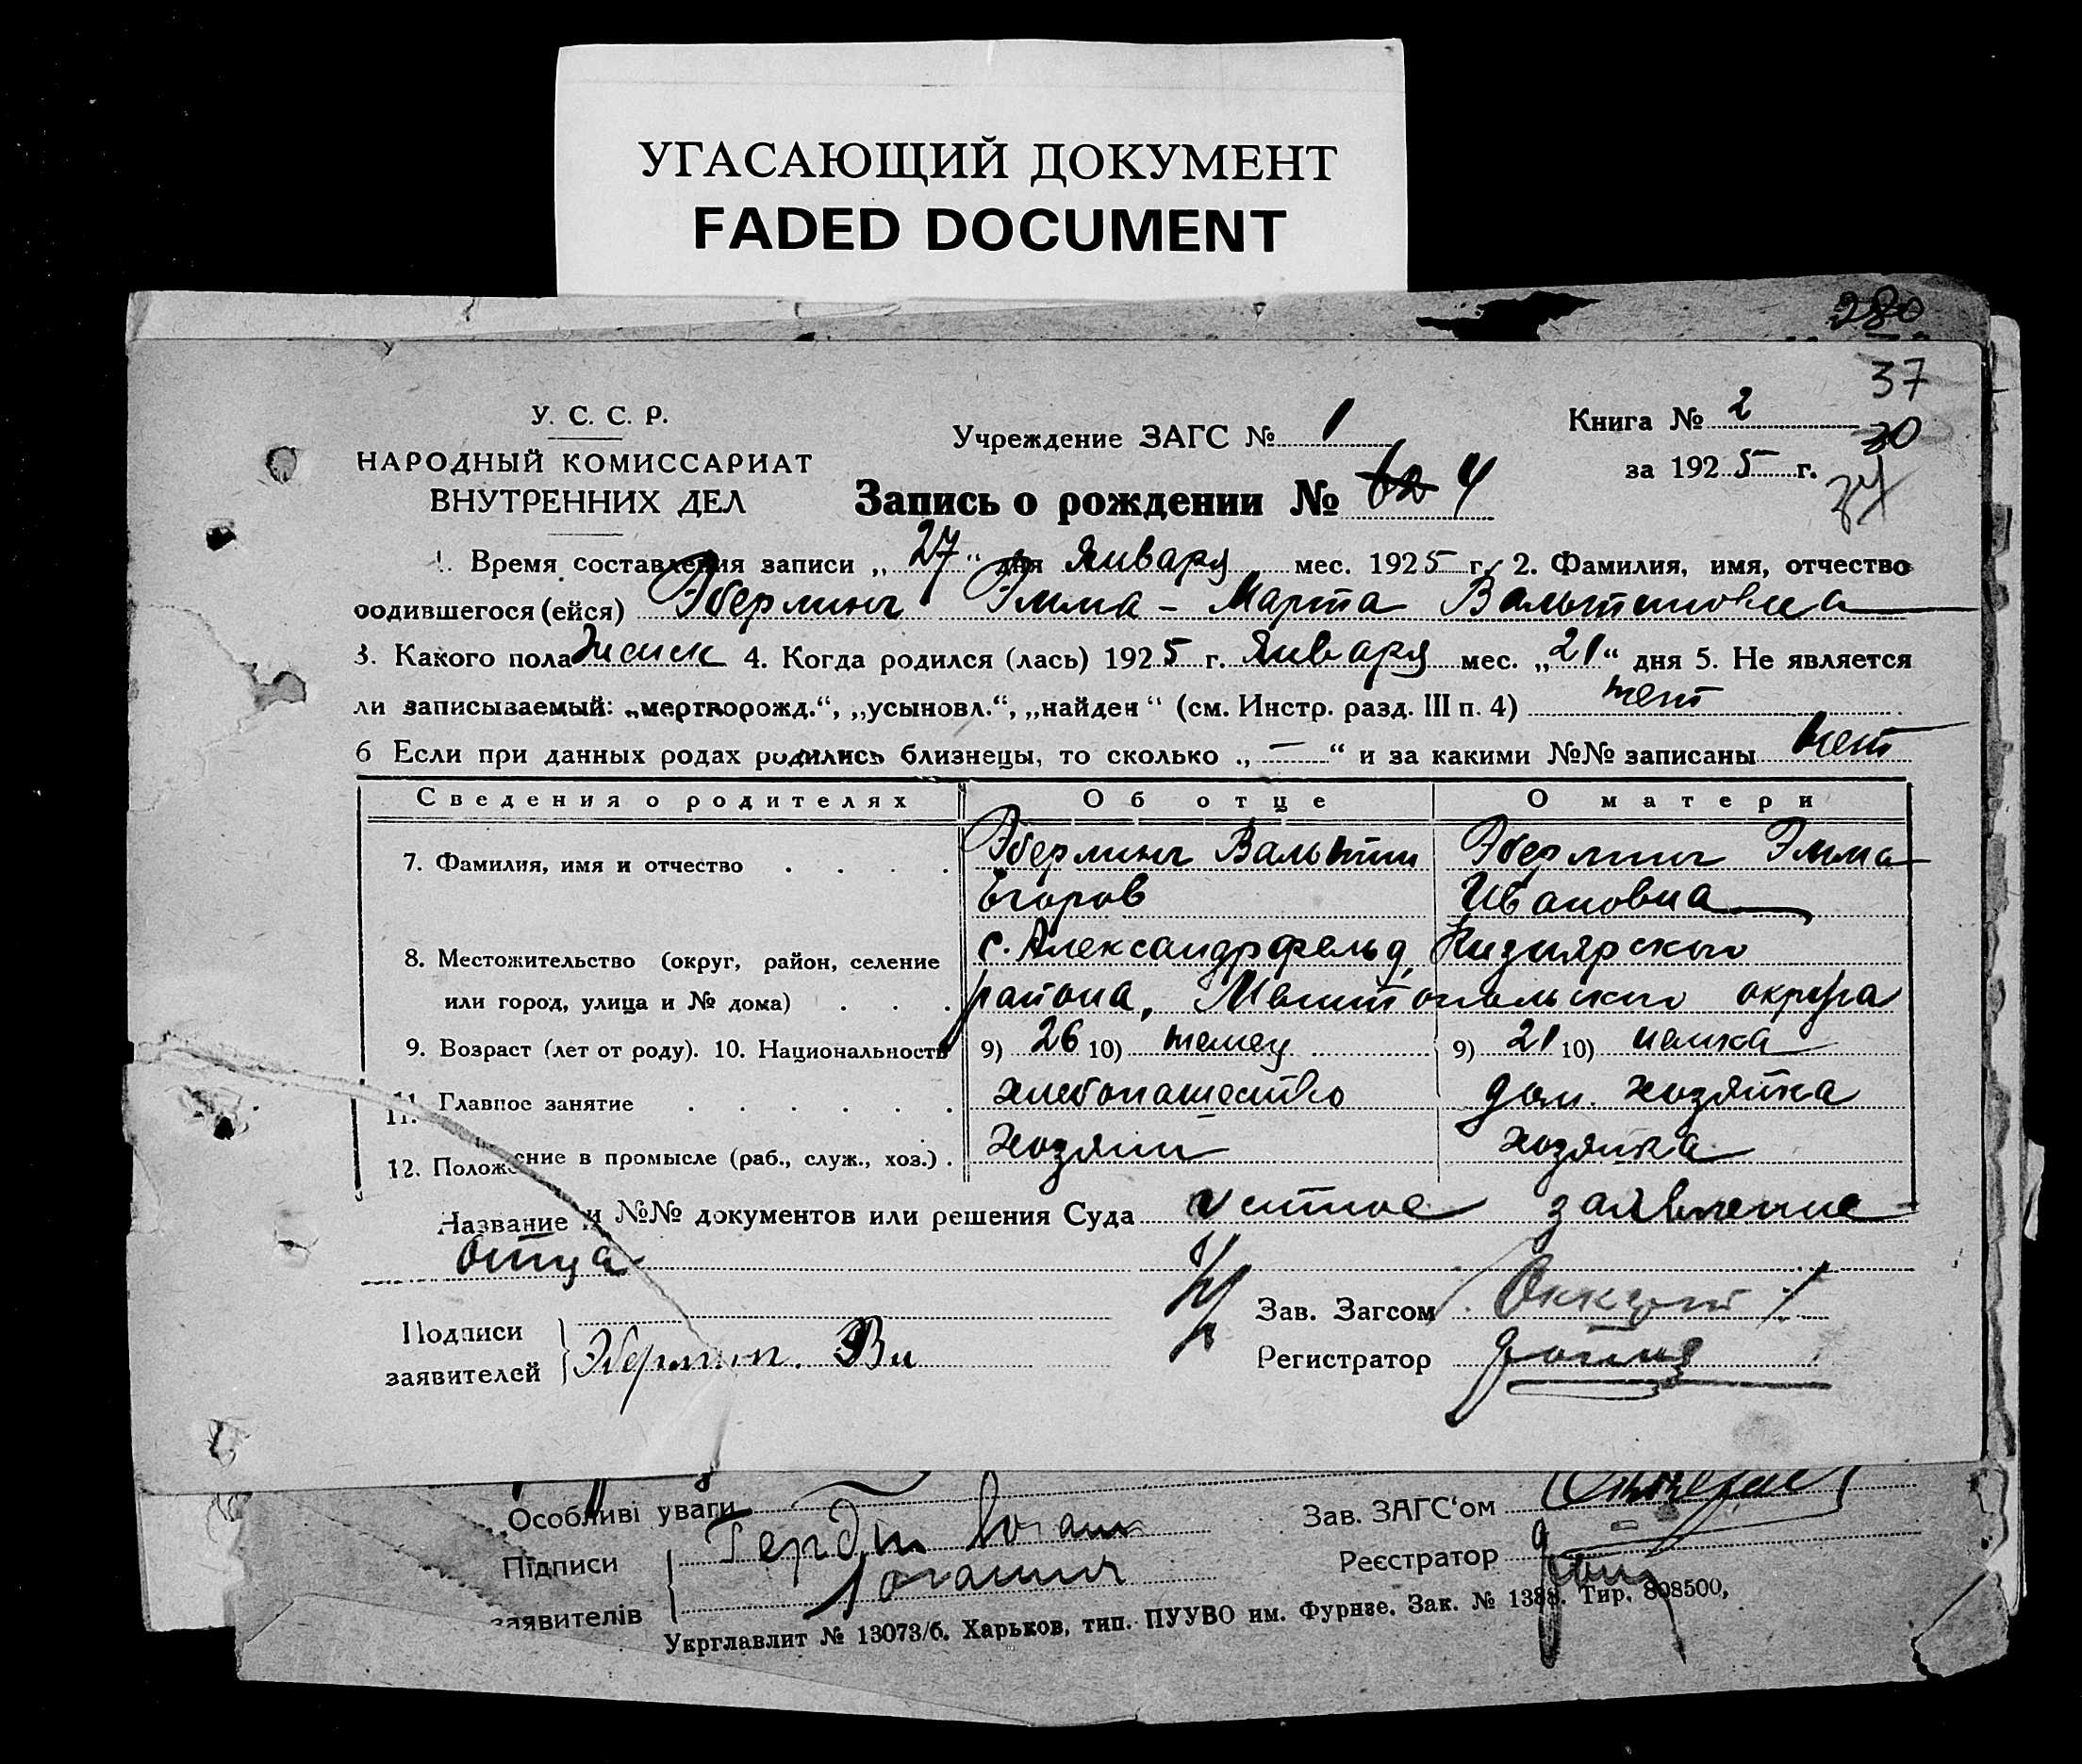 УГАСАЮЩИЙ ДОКУМЕНТ
FADED DOCUMENT
280
37
У. С. С. Р.
НАРОДНЫЙ КОМИССАРИАТ
ВНУТРЕННИХ ДЕЛ
Учреждение ЗАГС № 1
Книга № 2
30
за 1925 г.
Запись о рождении № 62 4
1. Время составления записи „27“ дня Января мес. 1925 г. 2. Фамилия, имя, отчество
родившегося (ейся) Эберлинг Эмма-Марта Вальтиновна
3. Какого пола женск 4. Когда родился (лась) 1925 г. Января мес. „21“ дня 5. Не является
ли записываемый: „мертворожд.“, „усыновл.“, „найден“ (см. Инстр. разд. III п. 4) нет
6 Если при данных родах родились близнецы, то сколько „—“ и за какими №№ записаны нет
Сведения о родителях Об отце О матери
7. Фамилия, имя и отчество Эберлинг Вальтин Эберлинг Эмма
Егоров Ивановна
8. Местожительство (округ, район, селение с. Александрфельд, Кизиярского
или город, улица и № дома) района, Мелитопольского округа
9. Возраст (лет от роду). 10. Национальность 9) 26 10) немец 9) 21 10) немка
11. Главное занятие хлебопашество дом. хозяйка
12. Положение в промысле (раб., служ., хоз.) хозяин хозяйка
Название и №№ документов или решения Суда устное заявление
отца
Зав. Загсом
Подписи
заявителей Эберлинг. Ва
Регистратор
Особливі уваги
Зав. ЗАГС‘ом
Підписи
Реєстратор
заявителів
Укрглавлит № 13073/б. Харьков, тип. ПУУВО им. Фрунзе. Зак. № 1388. Тир. 808500,